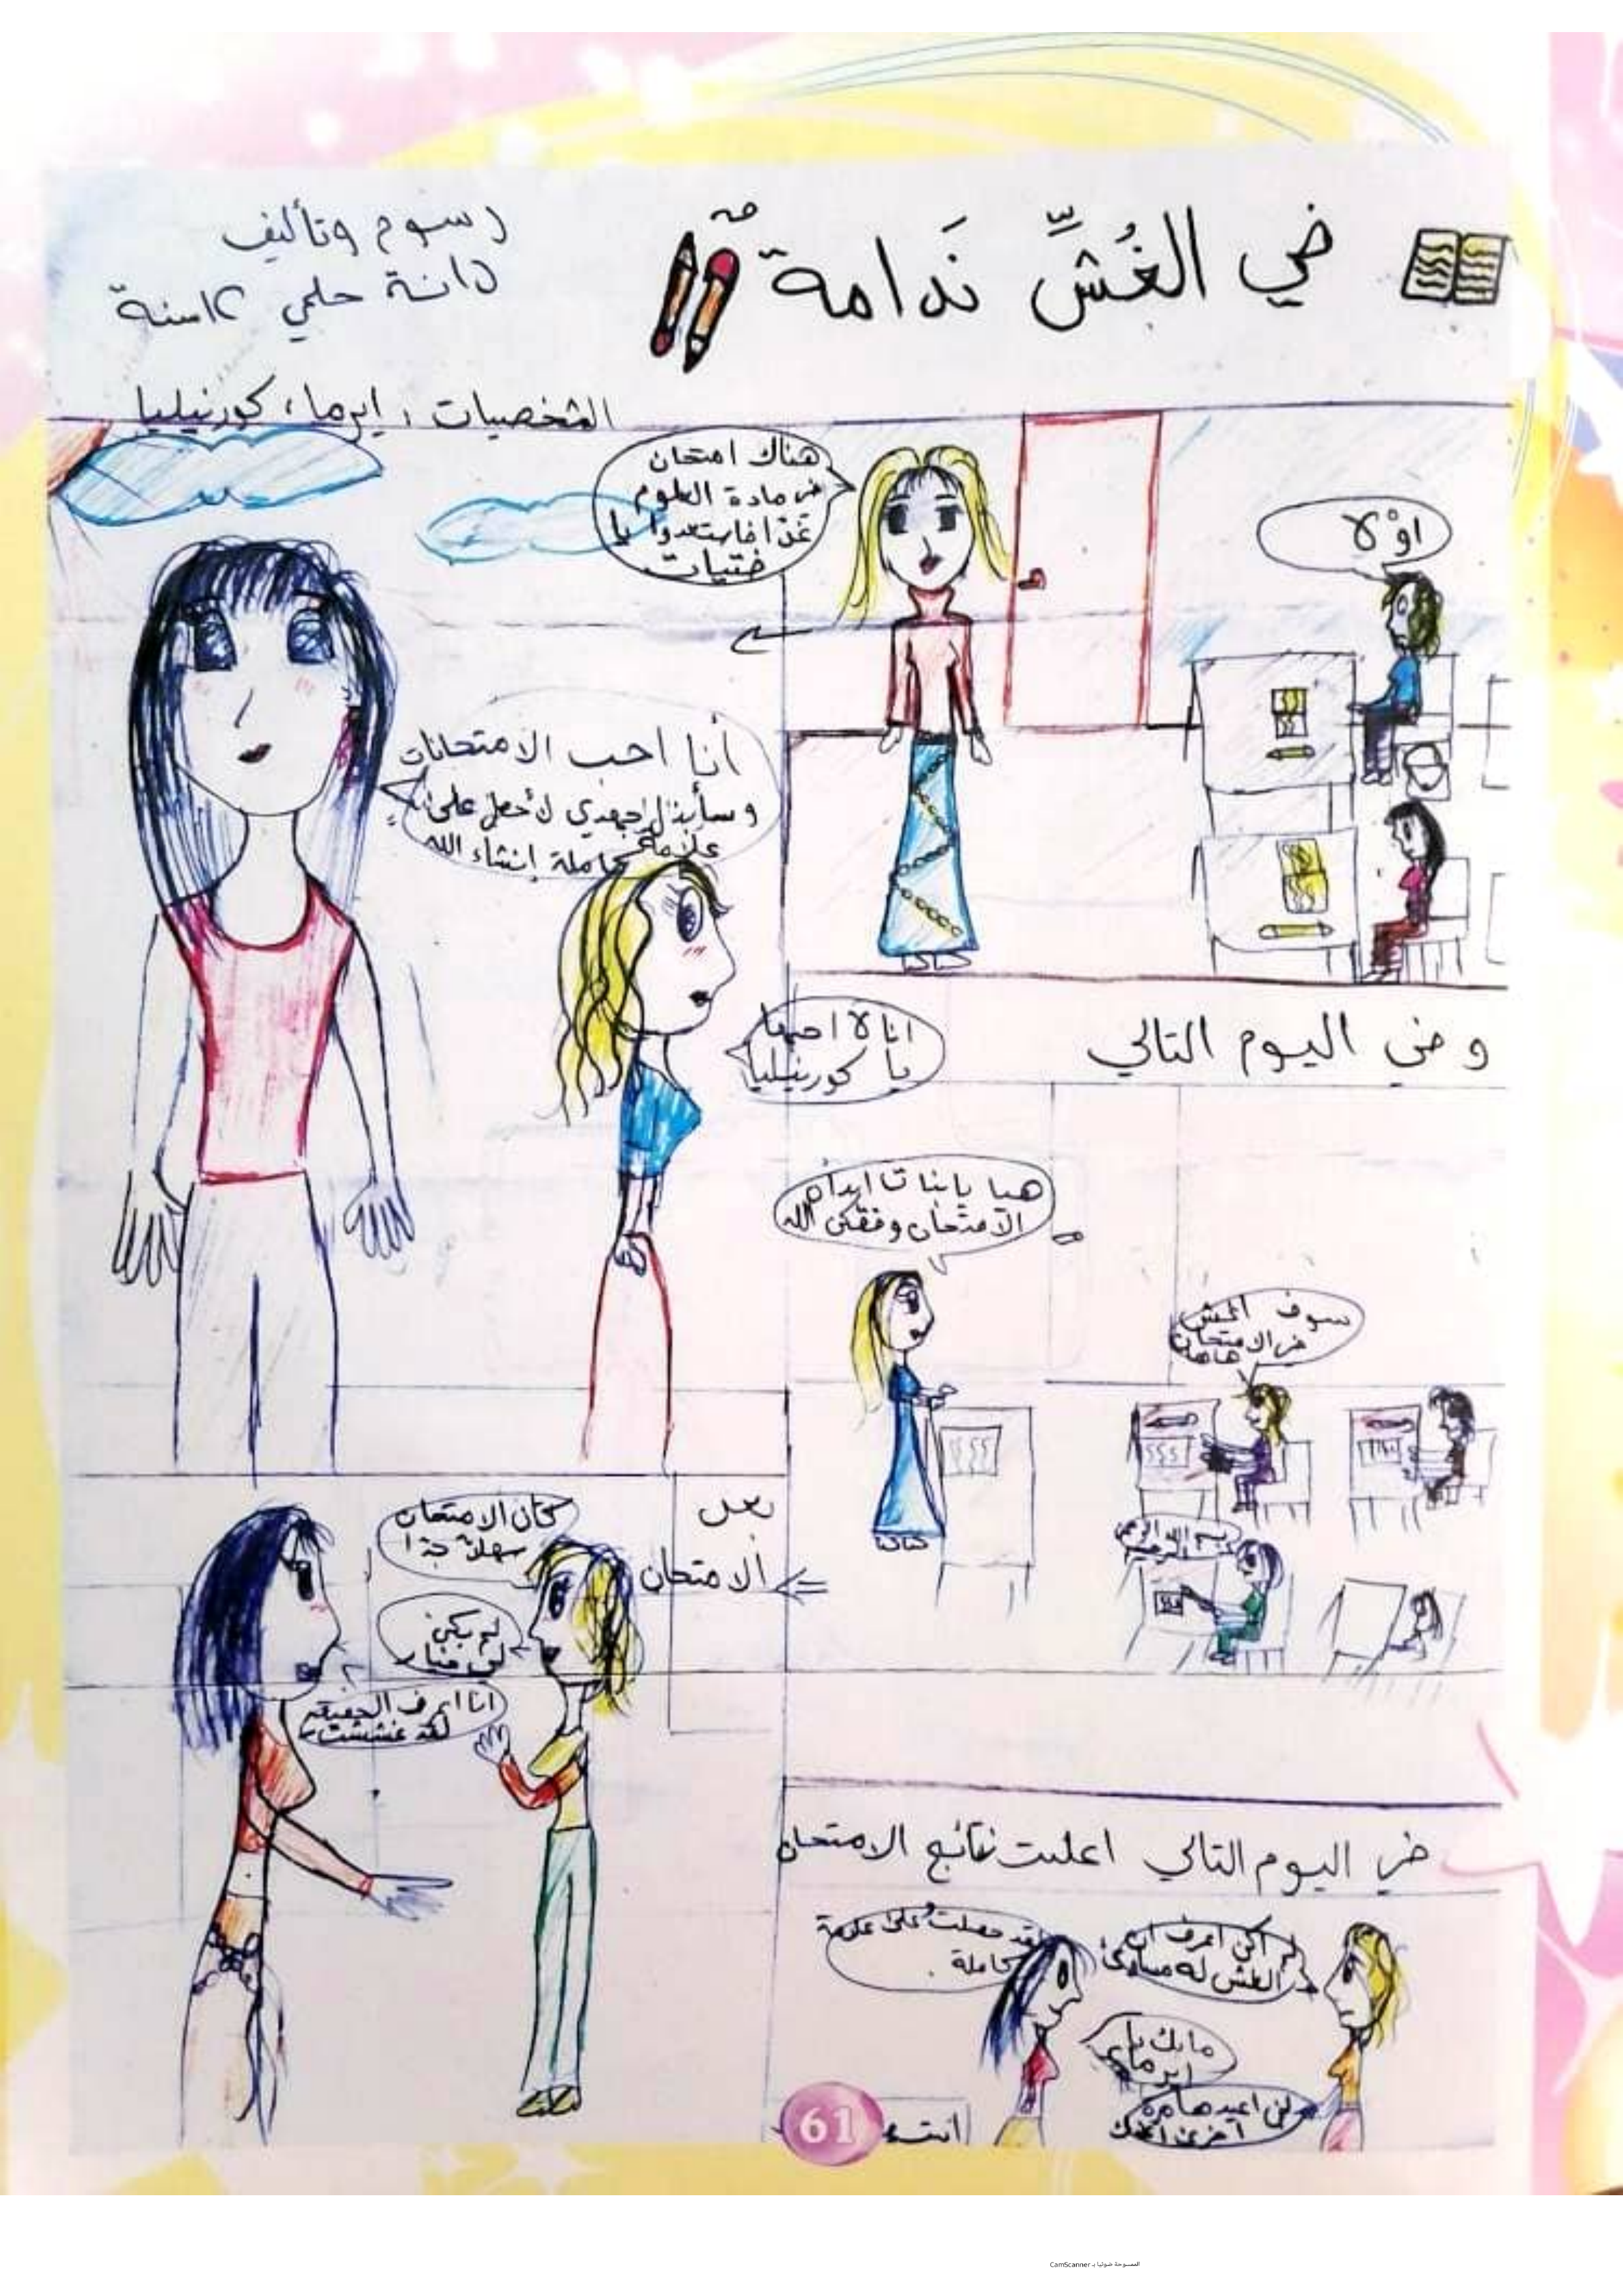 في الغُشِّ نَدامةٌ
رسوم وتأليف
دانة حلمي ١٢ سنة
الشخصيات: ايرما، كورنيليا
هناك امتحان
في مادة العلوم
غدا فاستعدوا يا
فتيات
اوْ لا
أنا احب الامتحانات
وسأبذل جهدي لأحصل على
علامة كاملة إنشاء الله
انا لا احبها
يا كورنيليا
وفي اليوم التالي
هيا يا بنات ابدأن
الامتحان وفقكن الله
سوف اغش
في الامتحان
هاهه
بسم الله الرحمن
الرحيم
بعد
الامتحان
كان الامتحان
سهلاً جدا
لم يكن
لي خيار
انا اعرف الحقيقة
لقد غششت
في اليوم التالي اعلنت نتائج الامتحان
لم اكن اعرف ان
الغش له مساوئ
لقد حصلت على علامة
كاملة.
مابك يا
ايرما
لن اعيدها مرة
اخرى
انتهى
61
الممسوحة ضوئيا بـ CamScanner